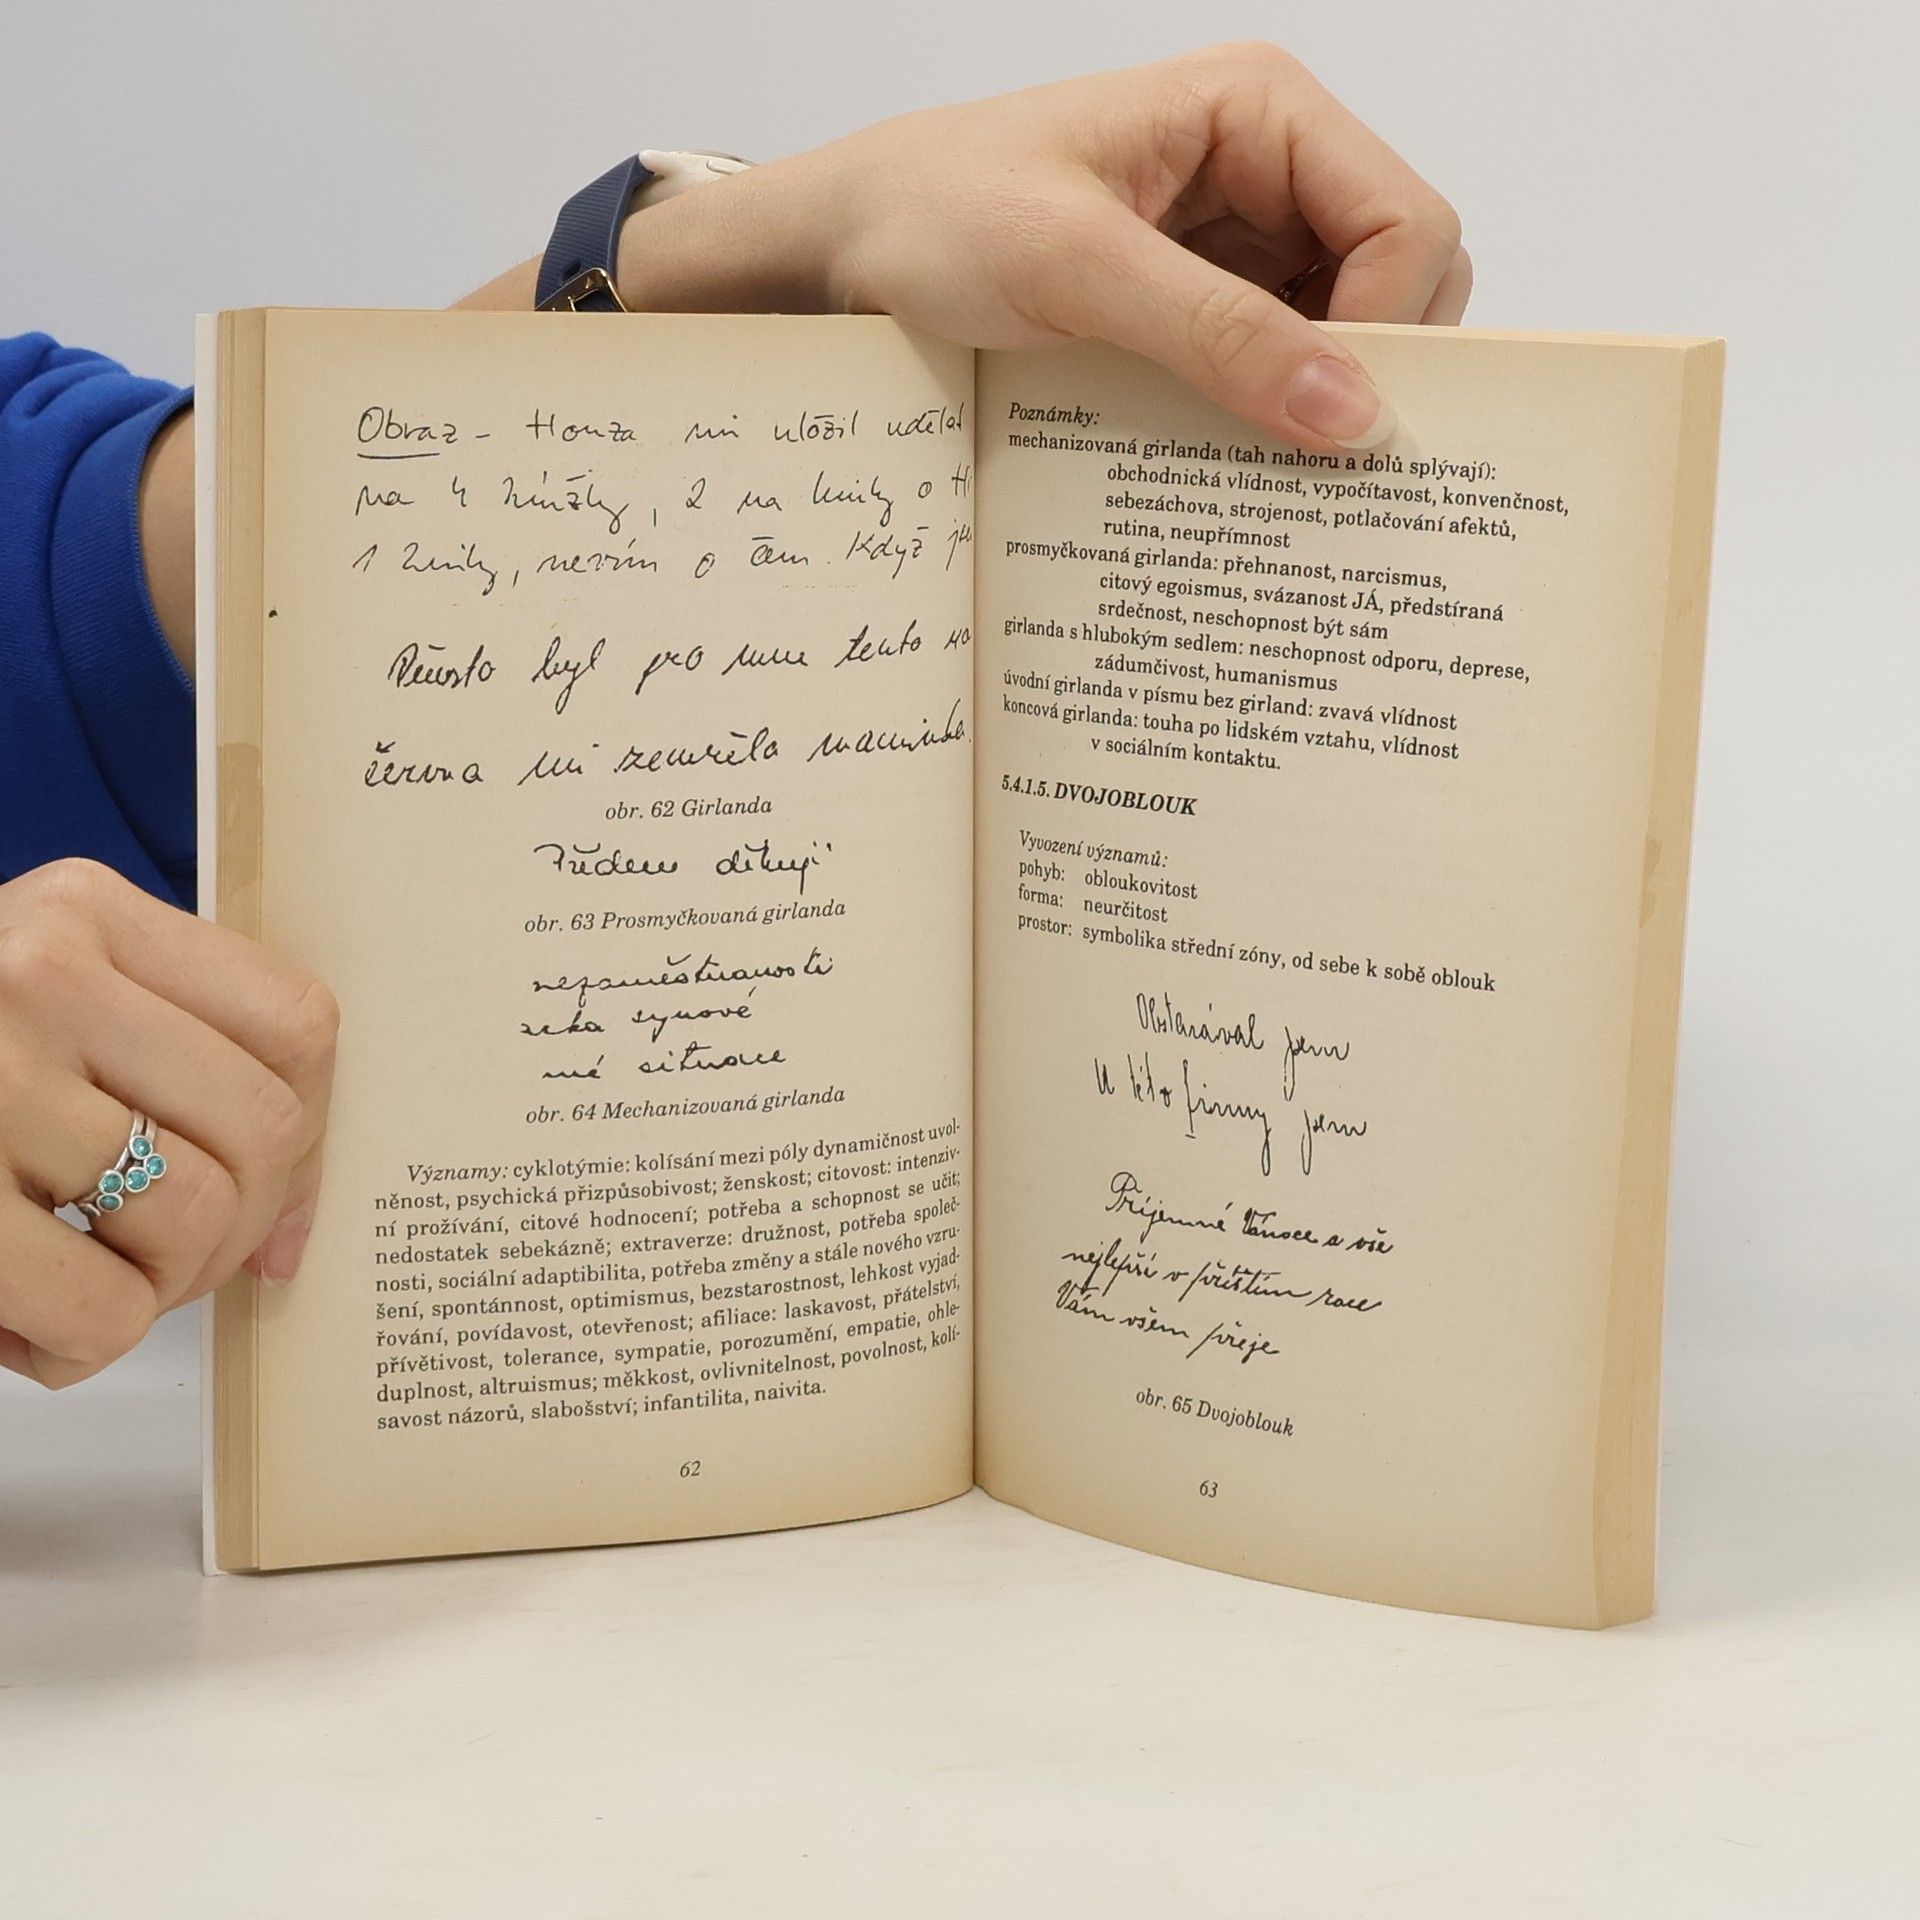 Obraz - Honza mi uložil udělat
na 4 knížky, 2 na knihy o
1 knihy, nevím o čem. Když
byl pro mne tento
června mi zemřela maminka.
obr. 62 Girlanda
Předem děkuji
obr. 63 Prosmyčkovaná girlanda
nezaměstnanosti
synové
mé situace
obr. 64 Mechanizovaná girlanda
Významy: cyklotýmie: kolísání mezi póly dynamičnost uvol-
něnost, psychická přizpůsobivost; ženskost; citovost: intenziv-
ní prožívání, citové hodnocení; potřeba a schopnost se učit;
nedostatek sebekázně; extraverze: družnost, potřeba společ-
nosti, sociální adaptibilita, potřeba změny a stále nového vzru-
šení, spontánnost, optimismus, bezstarostnost, lehkost vyjad-
řování, povídavost, otevřenost; afiliace: laskavost, přátelství,
přívětivost, tolerance, sympatie, porozumění, empatie, ohle-
duplnost, altruismus; měkkost, ovlivnitelnost, povolnost, kolí-
savost názorů, slabošství; infantilita, naivita.
62
Poznámky:
mechanizovaná girlanda (tah nahoru a dolů splývají):
obchodnická vlídnost, vypočítavost, konvenčnost,
sebezáchova, strojenost, potlačování afektů,
rutina, neupřímnost
prosmyčkovaná girlanda: přehnanost, narcismus,
citový egoismus, svázanost JÁ, předstíraná
srdečnost, neschopnost být sám
girlanda s hlubokým sedlem: neschopnost odporu, deprese,
zádumčivost, humanismus
úvodní girlanda v písmu bez girland: zvavá vlídnost
koncová girlanda: touha po lidském vztahu, vlídnost
v sociálním kontaktu.
5.4.1.5. DVOJOBLOUK
Vyvození významů:
pohyb: obloukovitost
forma: neurčitost
prostor: symbolika střední zóny, od sebe k sobě oblouk
Obstarával jsem
U této firmy jsem
Příjemné Vánoce a vše
nejlepší v příštím roce
Vám všem přeje
obr. 65 Dvojoblouk
63